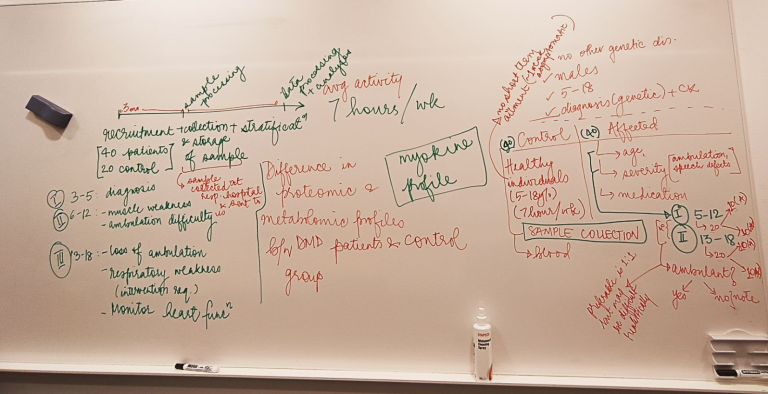 3mo
sample
processing
data
processing
+ analyses
recruitment + collection + stratificatⁿ
& storage
of sample
[40 patients
20 control]
sample
collected at
resp. hospital
& sent to
us
I 3-5: diagnosis
II 6-12: - muscle weakness
- ambulation difficulty
III 13-18: - loss of ambulation
- respiratory weakness
(intervention req.)
- Monitor heart funcⁿ
avg activity
7 hours/wk
Difference in
proteomic &
metabolomic profiles
b/n DMD patients & control
group
myokine
profile
no short term
ailment
asymptomatic)
✓ no other genetic dis.
✓ males
✓ 5-18
✓ diagnosis (genetic) + CK
(20) Control
Healthy
individuals
(5-18y/o)
(7 hour/wk)
(40) Affected
→ age
→ severity [ambulation,
speech defects]
→ medication
SAMPLE COLLECTION
→ blood
I 5-12
→ 20
II 13-18
→ 20
→ ambulant?
yes no/note
preferable is 1:1
but may
be difficult